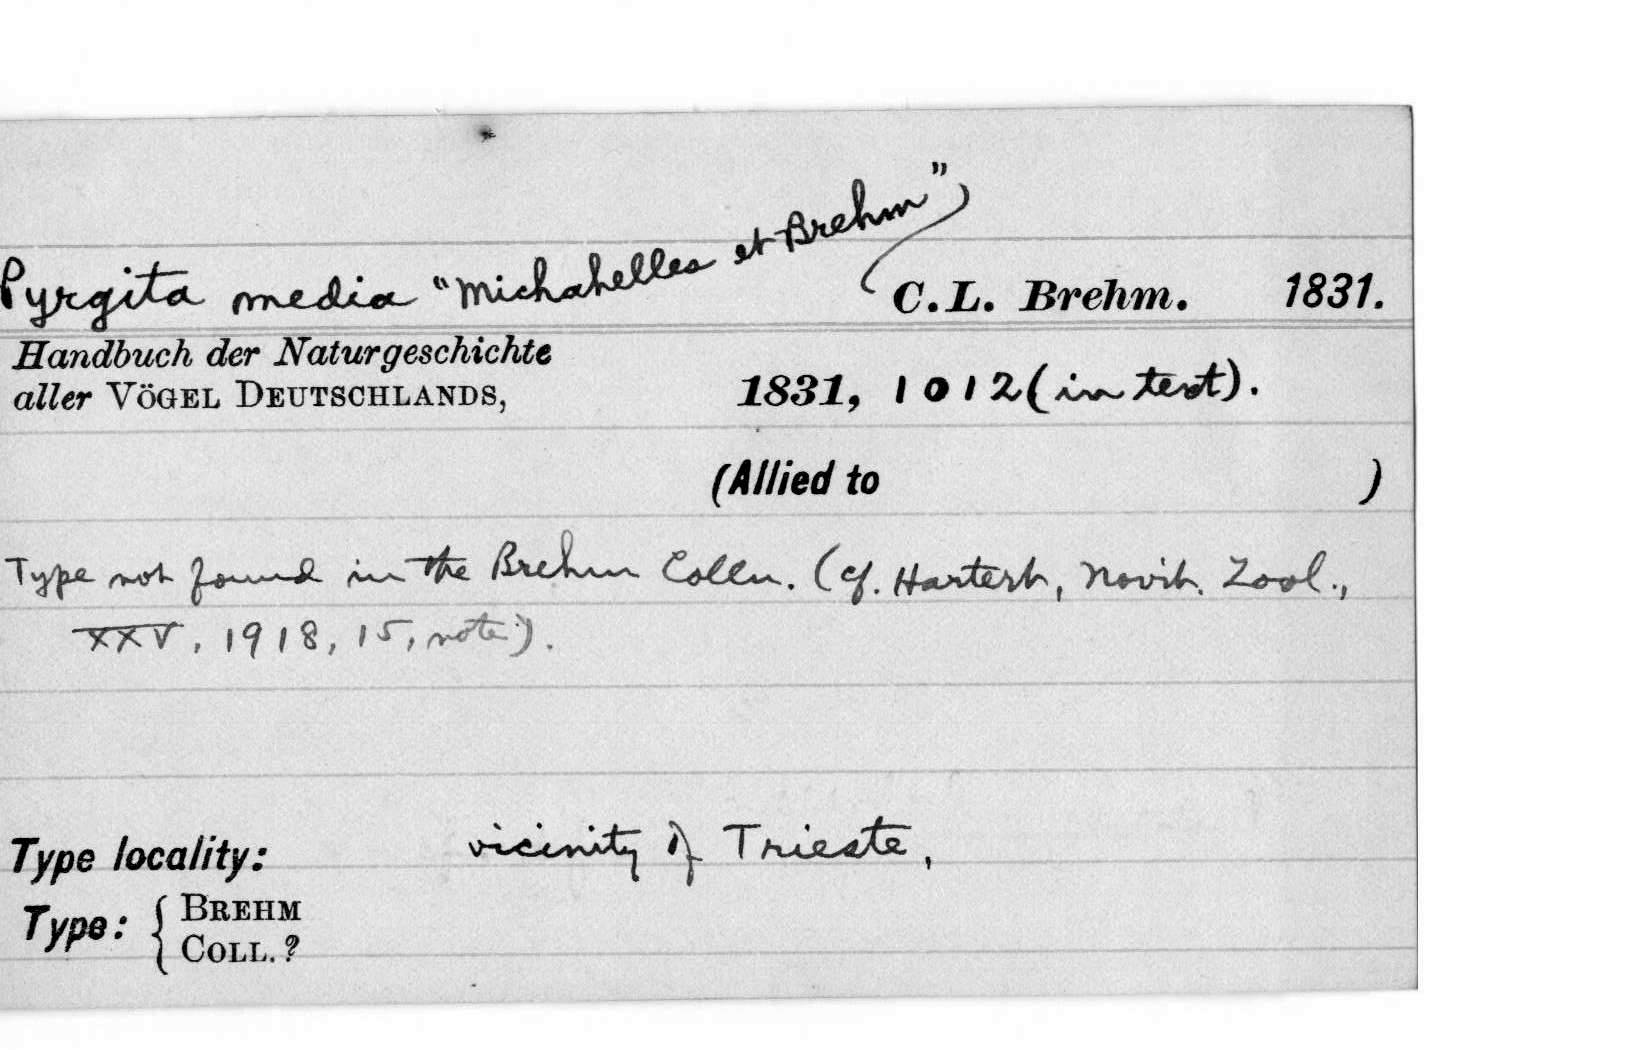 Pyrgita media "Michahelles et Brehm") C.L. Brehm. 1831.
Handbuch der Naturgeschichte
aller VÖGEL DEUTSCHLANDS, 1831, 1012 (in text).
(Allied to )
Type not found in the Brehm Colln. (cf. Hartert, Novit. Zool.,
XXV, 1918, 15, note).
Type locality: vicinity of Trieste,
Type: { BREHM
COLL.?